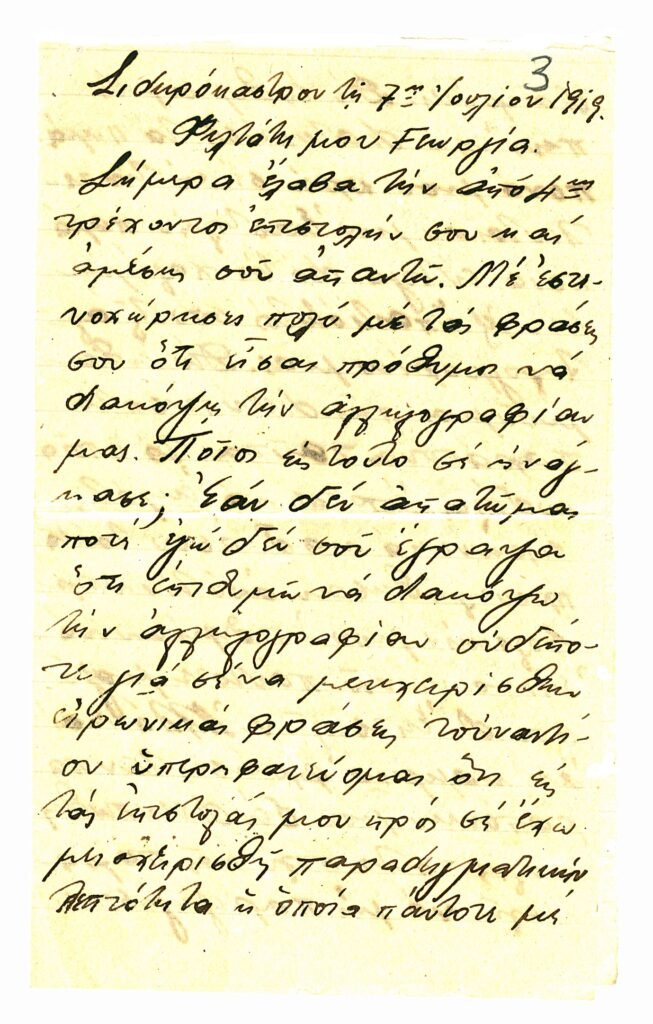 3
Σιδηρόκαστρον τῇ 7ῃ Ἰουλίου 1919.
Φιλτάτη μου Γεωργία.
Σήμερα ἔλαβα τὴν ἀπό 4ης
τρέχοντος ἐπιστολήν σου καί
ἀμέσως σοῦ ἀπαντῶ. Μέ ἐστε-
νοχώρησες πολύ μέ τάς φράσεις
σου ὅτι εἶσαι πρόθυμος νά
διακόψῃς τὴν ἀλληλογραφίαν
μας. Ποῖος εἰς τοῦτο σέ ἠνάγ-
κασε; Ἐάν δέν ἀπατῶμαι
ποτέ ἐγώ δέν σοῦ ἔγραψα
ὅτι ἐπιθυμῶ νά διακόψω
τήν ἀλληλογραφίαν οὐδέπο-
τε γιά σένα μετεχειρίσθην
εἰρωνικάς φράσεις τοὐναντί-
ον ὑπερηφανεύομαι ὅτι εἰς
τάς ἐπιστολάς μου πρός σέ ἔχω
μεταχειρισθῆ παραδειγματικήν
λεπτότητα ἡ ὁποία πάντοτε μέ